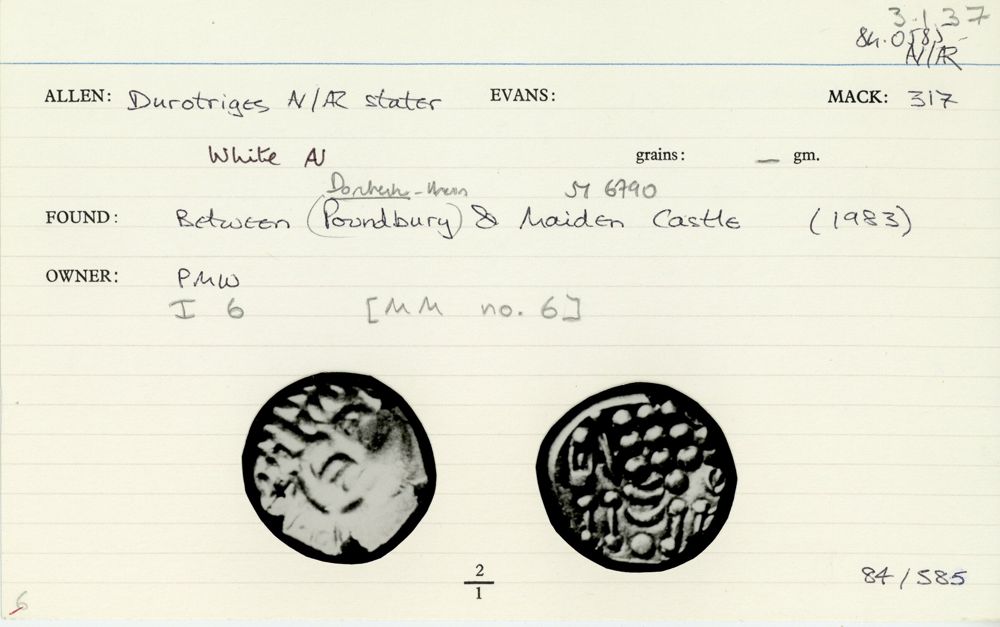 3.1.37
84.0585
N/AR
ALLEN: Durotriges N/AR stater EVANS: MACK: 317
White N grains: — gm.
SY 6790
FOUND: Between (Poundbury) & Maiden Castle (1983)
OWNER: PMW
I 6 [MM no. 6]
2
1
84/585
6